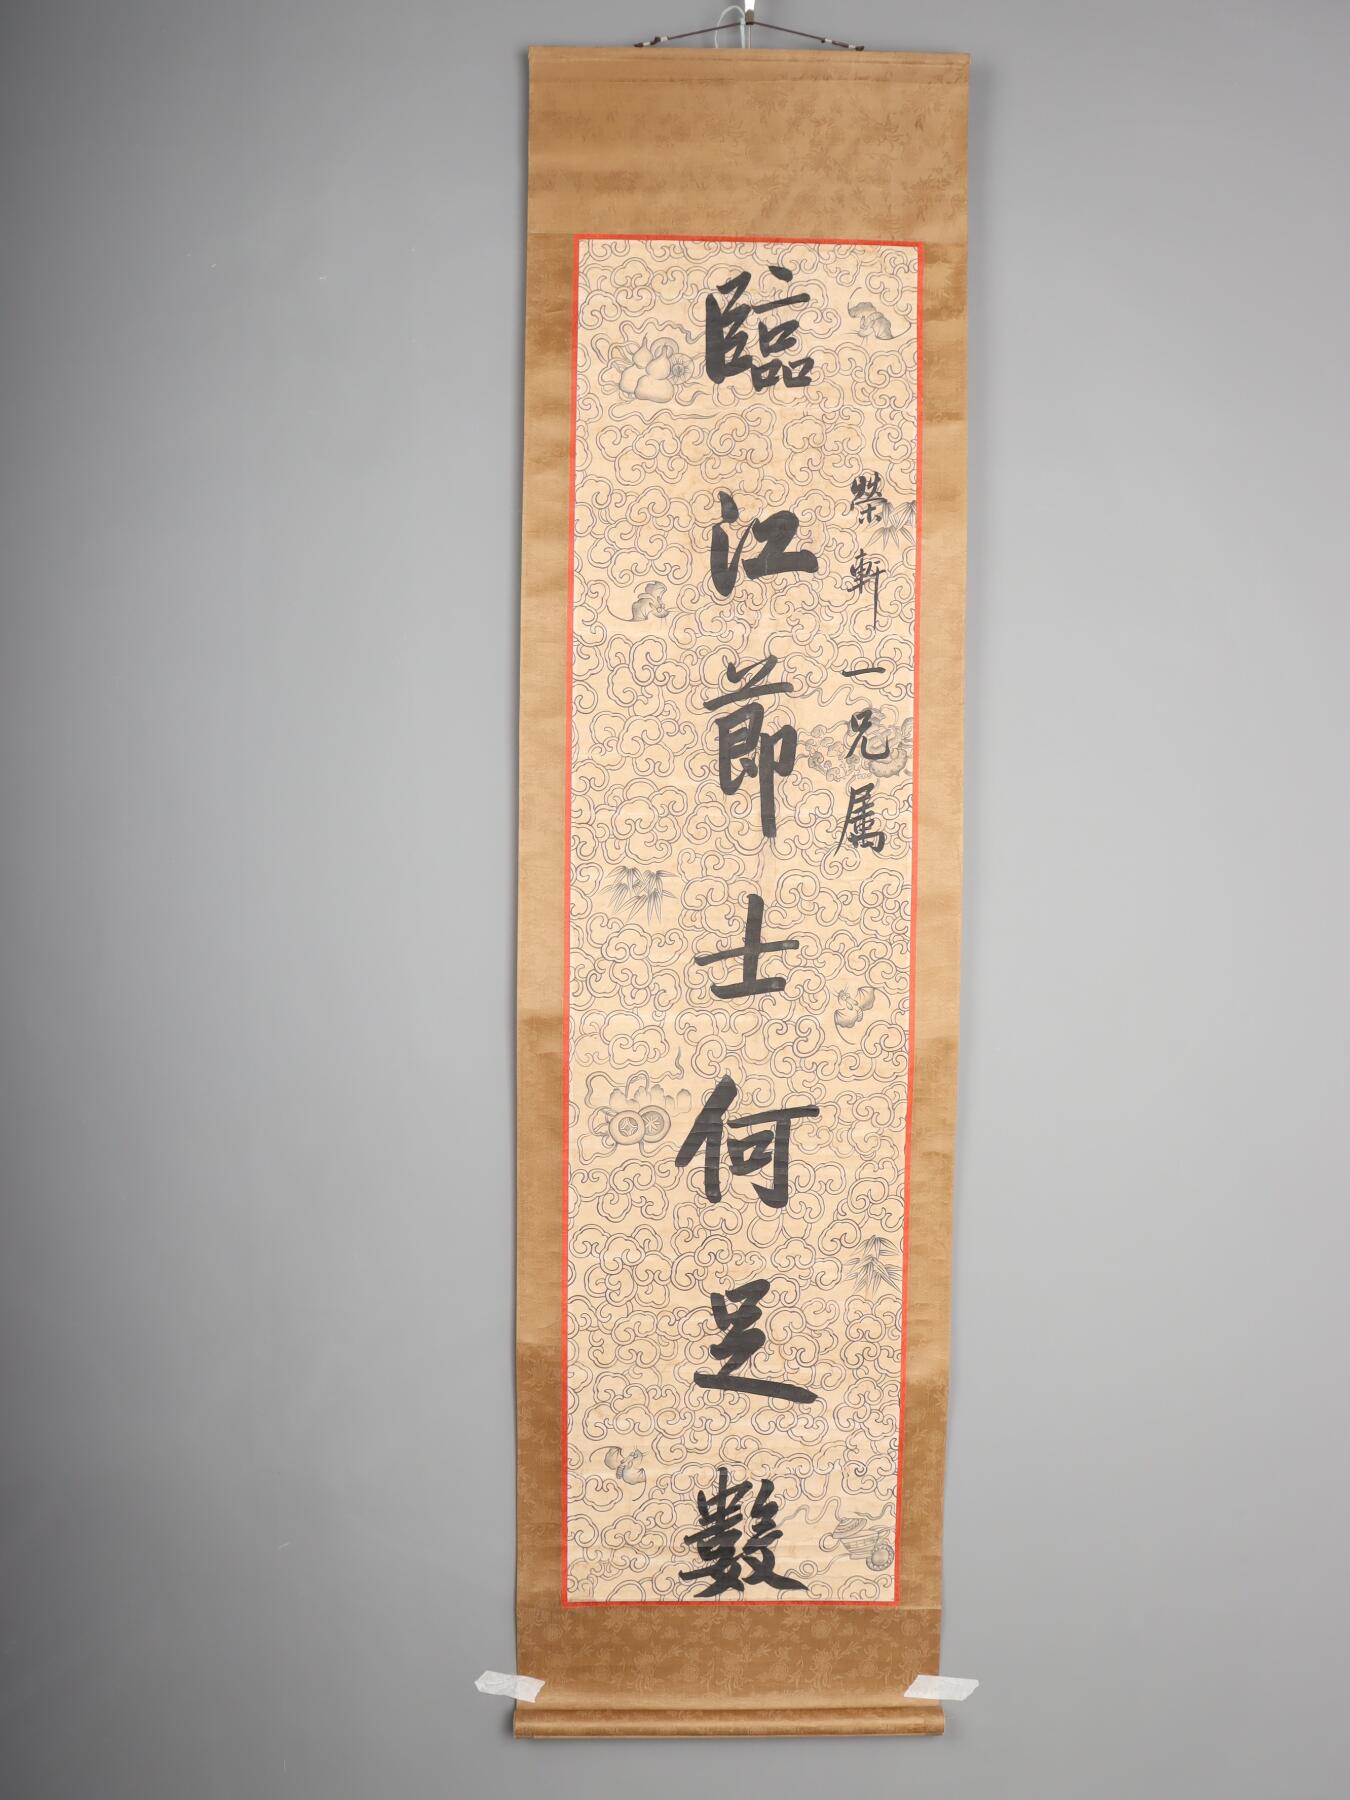 榮軒一兄属
臨江節士何足數